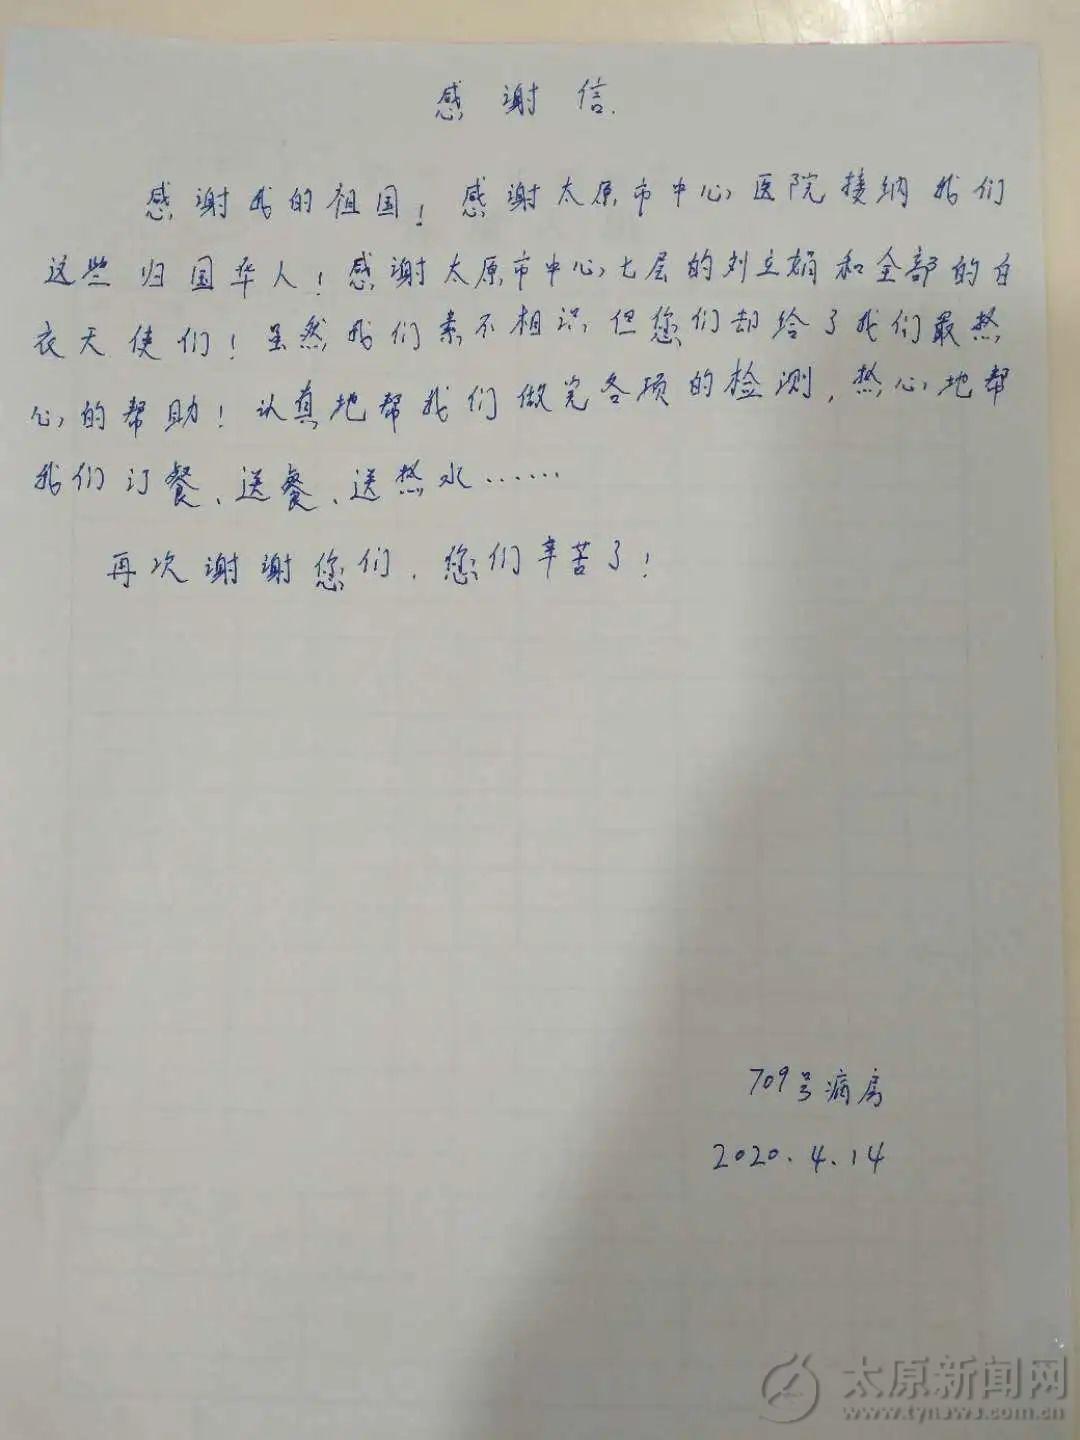 感谢信.
感谢我的祖国！感谢太原市中心医院接纳我们
这些归国华人！感谢太原市中心七层的刘立娟和全部的白
衣天使们！虽然我们素不相识,但您们却给了我们最热
心的帮助！认真地帮我们做完各项的检测，热心地帮
我们订餐、送餐、送热水……
再次谢谢您们，您们辛苦了！
709号病房
2020.4.14
太原新闻网
www.tynews.com.cn